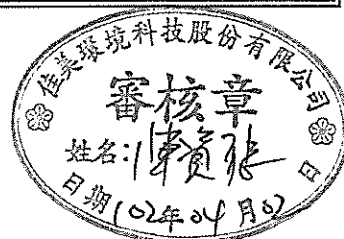 佳美環境科技股份有限公司
審核章
姓名:陳資強
日期 102年04月02日